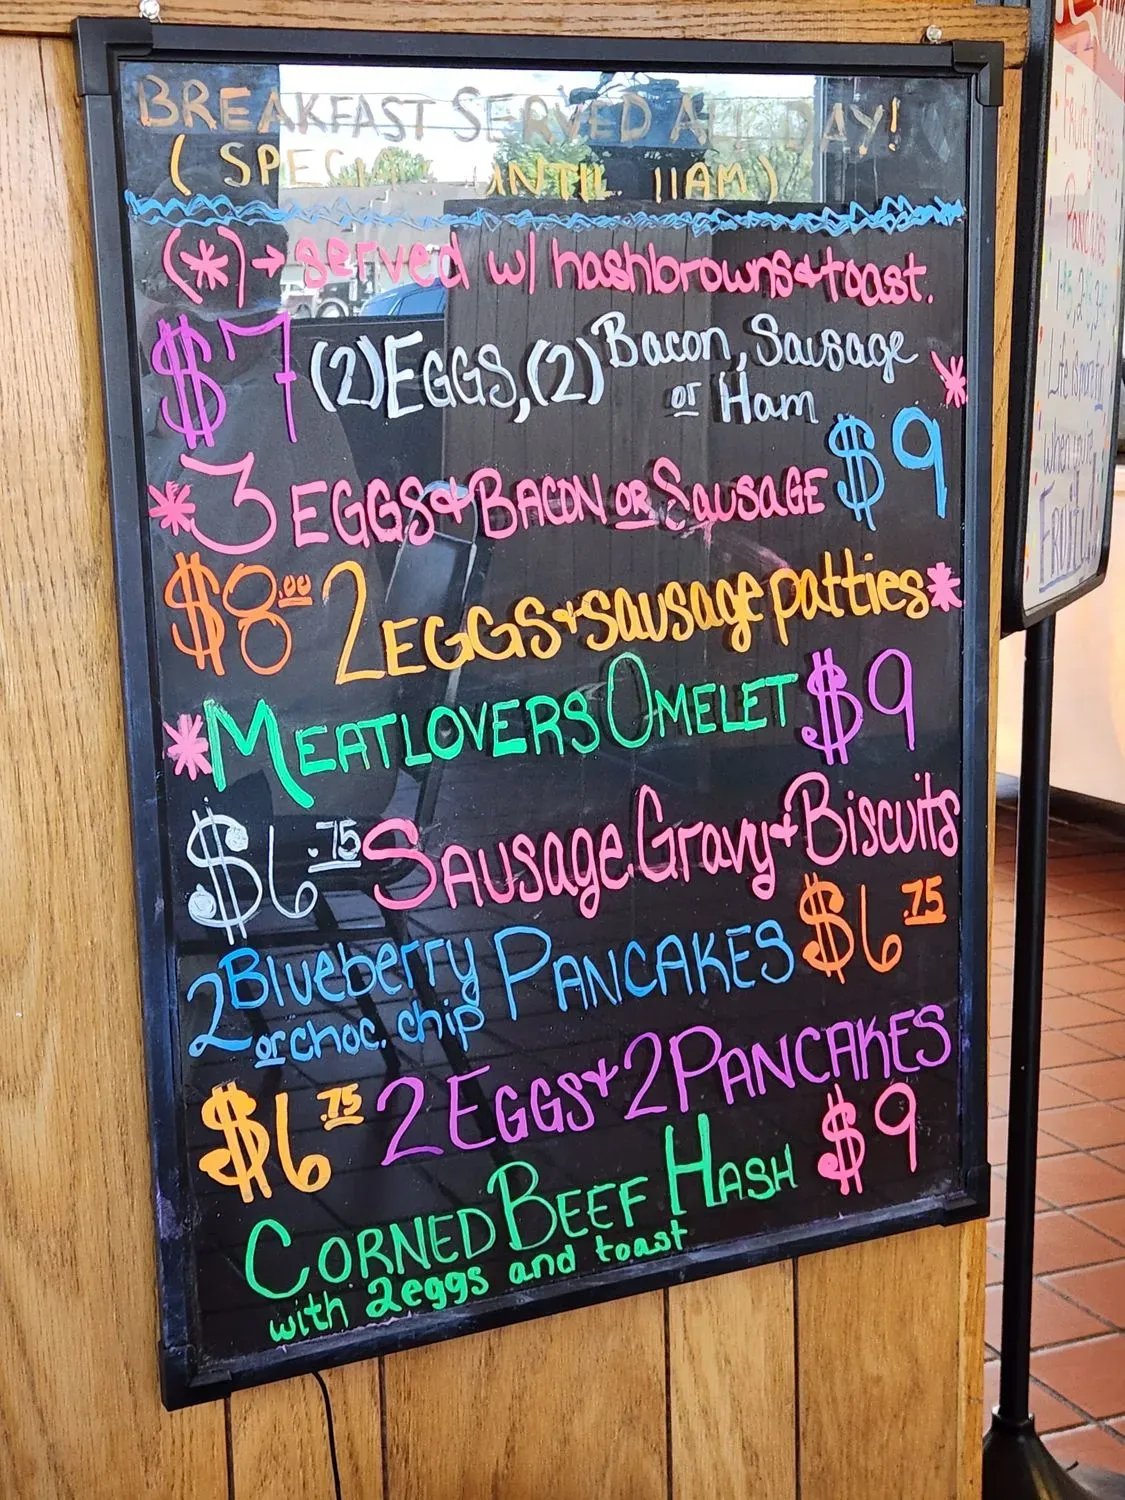 BREAKFAST SERVED ALL DAY!
(SPECIAL UNTIL 11AM)
(*)→ served w/ hashbrowns & toast.
$7 (2) EGGS, (2) Bacon, Sausage
or Ham *
* 3 EGGS & BACON OR SAUSAGE $9
$8.00 2 EGGS & sausage patties *
* MEATLOVERS OMELET $9
$6.75 SAUSAGE GRAVY & BISCUITS
2 Blueberry PANCAKES $6.75
or choc. chip
$6.75 2 EGGS & 2 PANCAKES
CORNED BEEF HASH $9
with 2 eggs and toast
Pancakes
when you're
Fruit!!